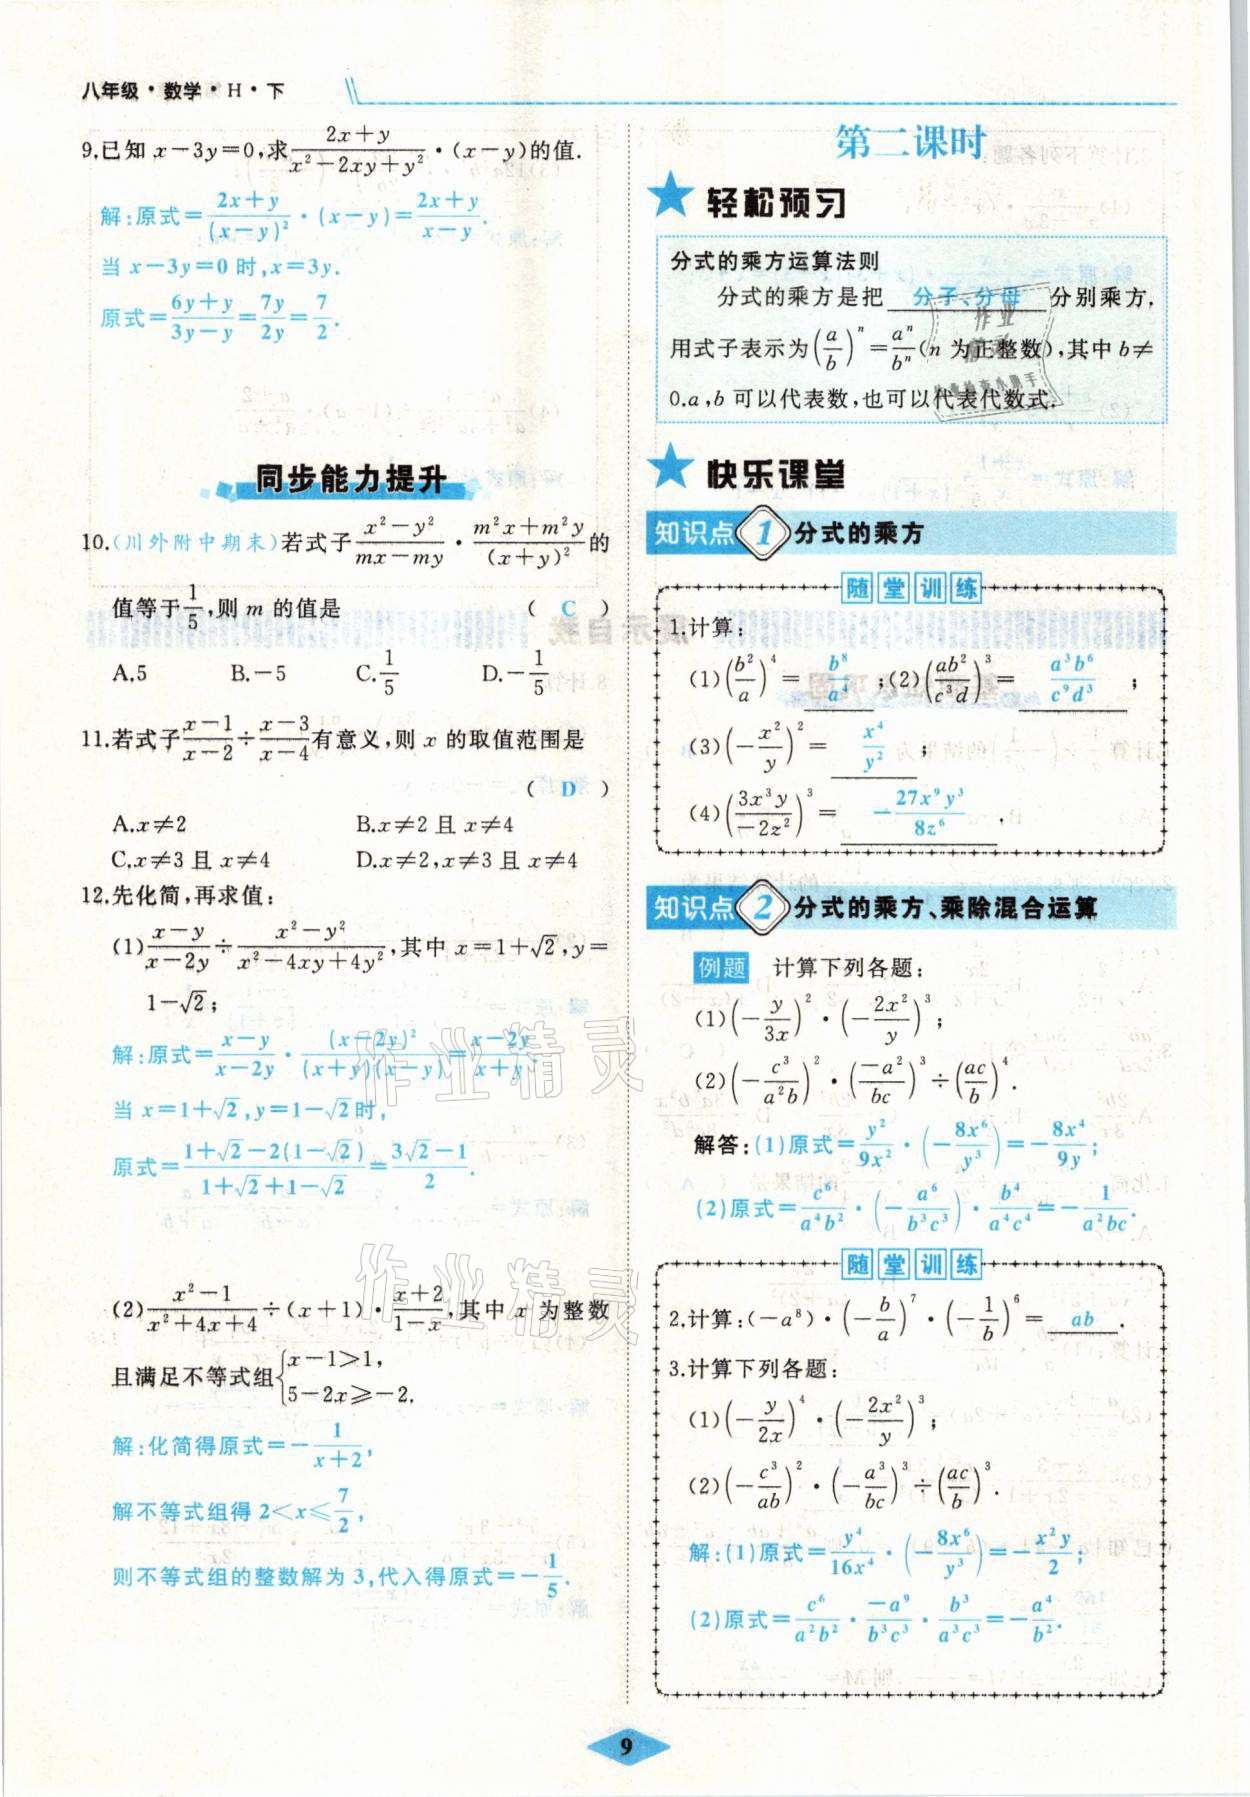 八年级·数学·H·下
9.已知 x－3y＝0,求\frac{2x+y}{x²－2xy+y²}·(x－y)的值.
解:原式＝\frac{2x+y}{(x－y)²}·(x－y)＝\frac{2x+y}{x－y}.
当 x－3y＝0 时,x＝3y.
原式＝\frac{6y+y}{3y－y}＝\frac{7y}{2y}＝\frac{7}{2}.
同步能力提升
10.(川外附中期末)若式子\frac{x²－y²}{mx－my}·\frac{m²x+m²y}{(x+y)²}的
值等于\frac{1}{5},则 m 的值是 ( C )
A.5 B.－5 C.\frac{1}{5} D.－\frac{1}{5}
11.若式子\frac{x－1}{x－2}÷\frac{x－3}{x－4}有意义,则 x 的取值范围是
( D )
A.x≠2 B.x≠2 且 x≠4
C.x≠3 且 x≠4 D.x≠2,x≠3 且 x≠4
12.先化简,再求值:
(1)\frac{x－y}{x－2y}÷\frac{x²－y²}{x²－4xy+4y²},其中 x＝1+√2,y＝
1－√2;
解:原式＝\frac{x－y}{x－2y}·\frac{(x－2y)²}{(x+y)(x－y)}＝\frac{x－2y}{x+y}.
当 x＝1+√2,y＝1－√2时,
原式＝\frac{1+√2－2(1－√2)}{1+√2+1－√2}＝\frac{3√2－1}{2}.
(2)\frac{x²－1}{x²+4x+4}÷(x+1)·\frac{x+2}{1－x},其中 x 为整数
且满足不等式组{x－1>1,
5－2x≥－2.
解:化简得原式＝－\frac{1}{x+2},
解不等式组得 2<x≤\frac{7}{2},
则不等式组的整数解为 3,代入得原式＝－\frac{1}{5}.
第二课时
轻松预习
分式的乘方运算法则
分式的乘方是把 分子、分母 分别乘方,
用式子表示为(\frac{a}{b})ⁿ＝\frac{aⁿ}{bⁿ}(n 为正整数),其中 b≠
0.a,b 可以代表数,也可以代表代数式.
快乐课堂
知识点 1 分式的乘方
随堂训练
1.计算:
(1)(\frac{b²}{a})⁴＝ \frac{b⁸}{a⁴} ;(2)(\frac{ab²}{c³d})³＝ \frac{a³b⁶}{c⁹d³} ;
(3)(－\frac{x²}{y})²＝ \frac{x⁴}{y²}
(4)(\frac{3x³y}{－2z²})³＝ －\frac{27x⁹y³}{8z⁶} .
知识点 2 分式的乘方、乘除混合运算
例题 计算下列各题:
(1)(－\frac{y}{3x})²·(－\frac{2x²}{y})³;
(2)(－\frac{c³}{a²b})²·(\frac{－a²}{bc})³÷(\frac{ac}{b})⁴.
解答:(1)原式＝\frac{y²}{9x²}·(－\frac{8x⁶}{y³})＝－\frac{8x⁴}{9y};
(2)原式＝\frac{c⁶}{a⁴b²}·(－\frac{a⁶}{b³c³})·\frac{b⁴}{a⁴c⁴}＝－\frac{1}{a²bc}.
随堂训练
2.计算:(－a⁸)·(－\frac{b}{a})⁷·(－\frac{1}{b})⁶＝ ab .
3.计算下列各题:
(1)(－\frac{y}{2x})⁴·(－\frac{2x²}{y})³;
(2)(－\frac{c³}{ab})²·(－\frac{a³}{bc})³÷(\frac{ac}{b})³.
解:(1)原式＝\frac{y⁴}{16x⁴}·(－\frac{8x⁶}{y³})＝－\frac{x²y}{2};
(2)原式＝\frac{c⁶}{a²b²}·\frac{－a⁹}{b³c³}·\frac{b³}{a³c³}＝－\frac{a⁴}{b²}.
9
作业精灵
作业精灵